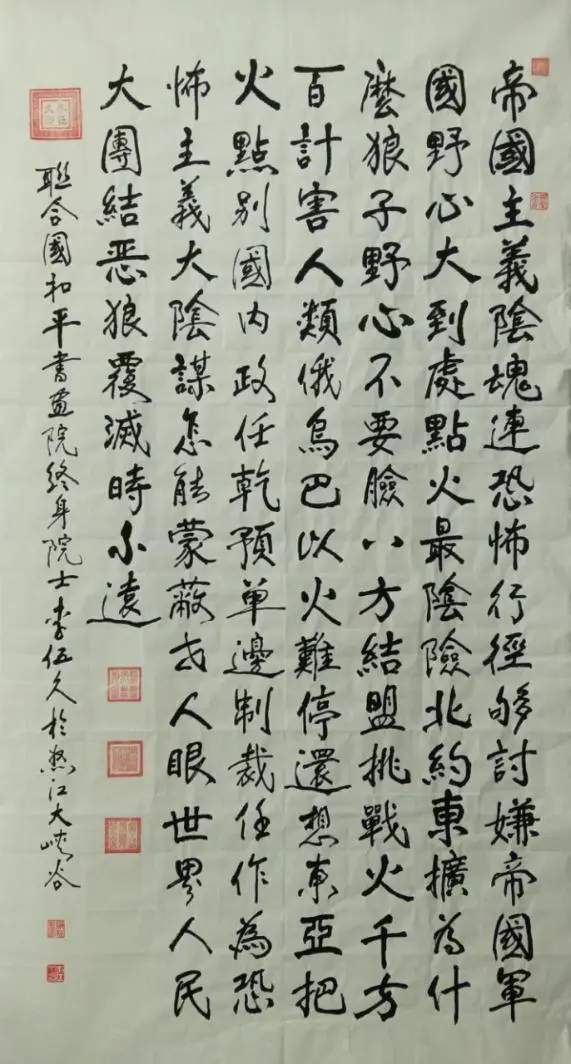 帝國主義陰魂連恐怖行徑够討嫌帝國軍
國野心大到處點火最陰險北約東擴為什
麼狼子野心不要臉八方結盟挑戰火千方
百計害人類俄烏巴以火難停還想東亞把
火點别國内政任乾預单邊制裁任作為恐
怖主義大陰謀怎能蒙蔽世人眼世界人民
大團結恶狼覆滅時不遠
聯合國和平書画院终身院士李伍久於怒江大峡谷